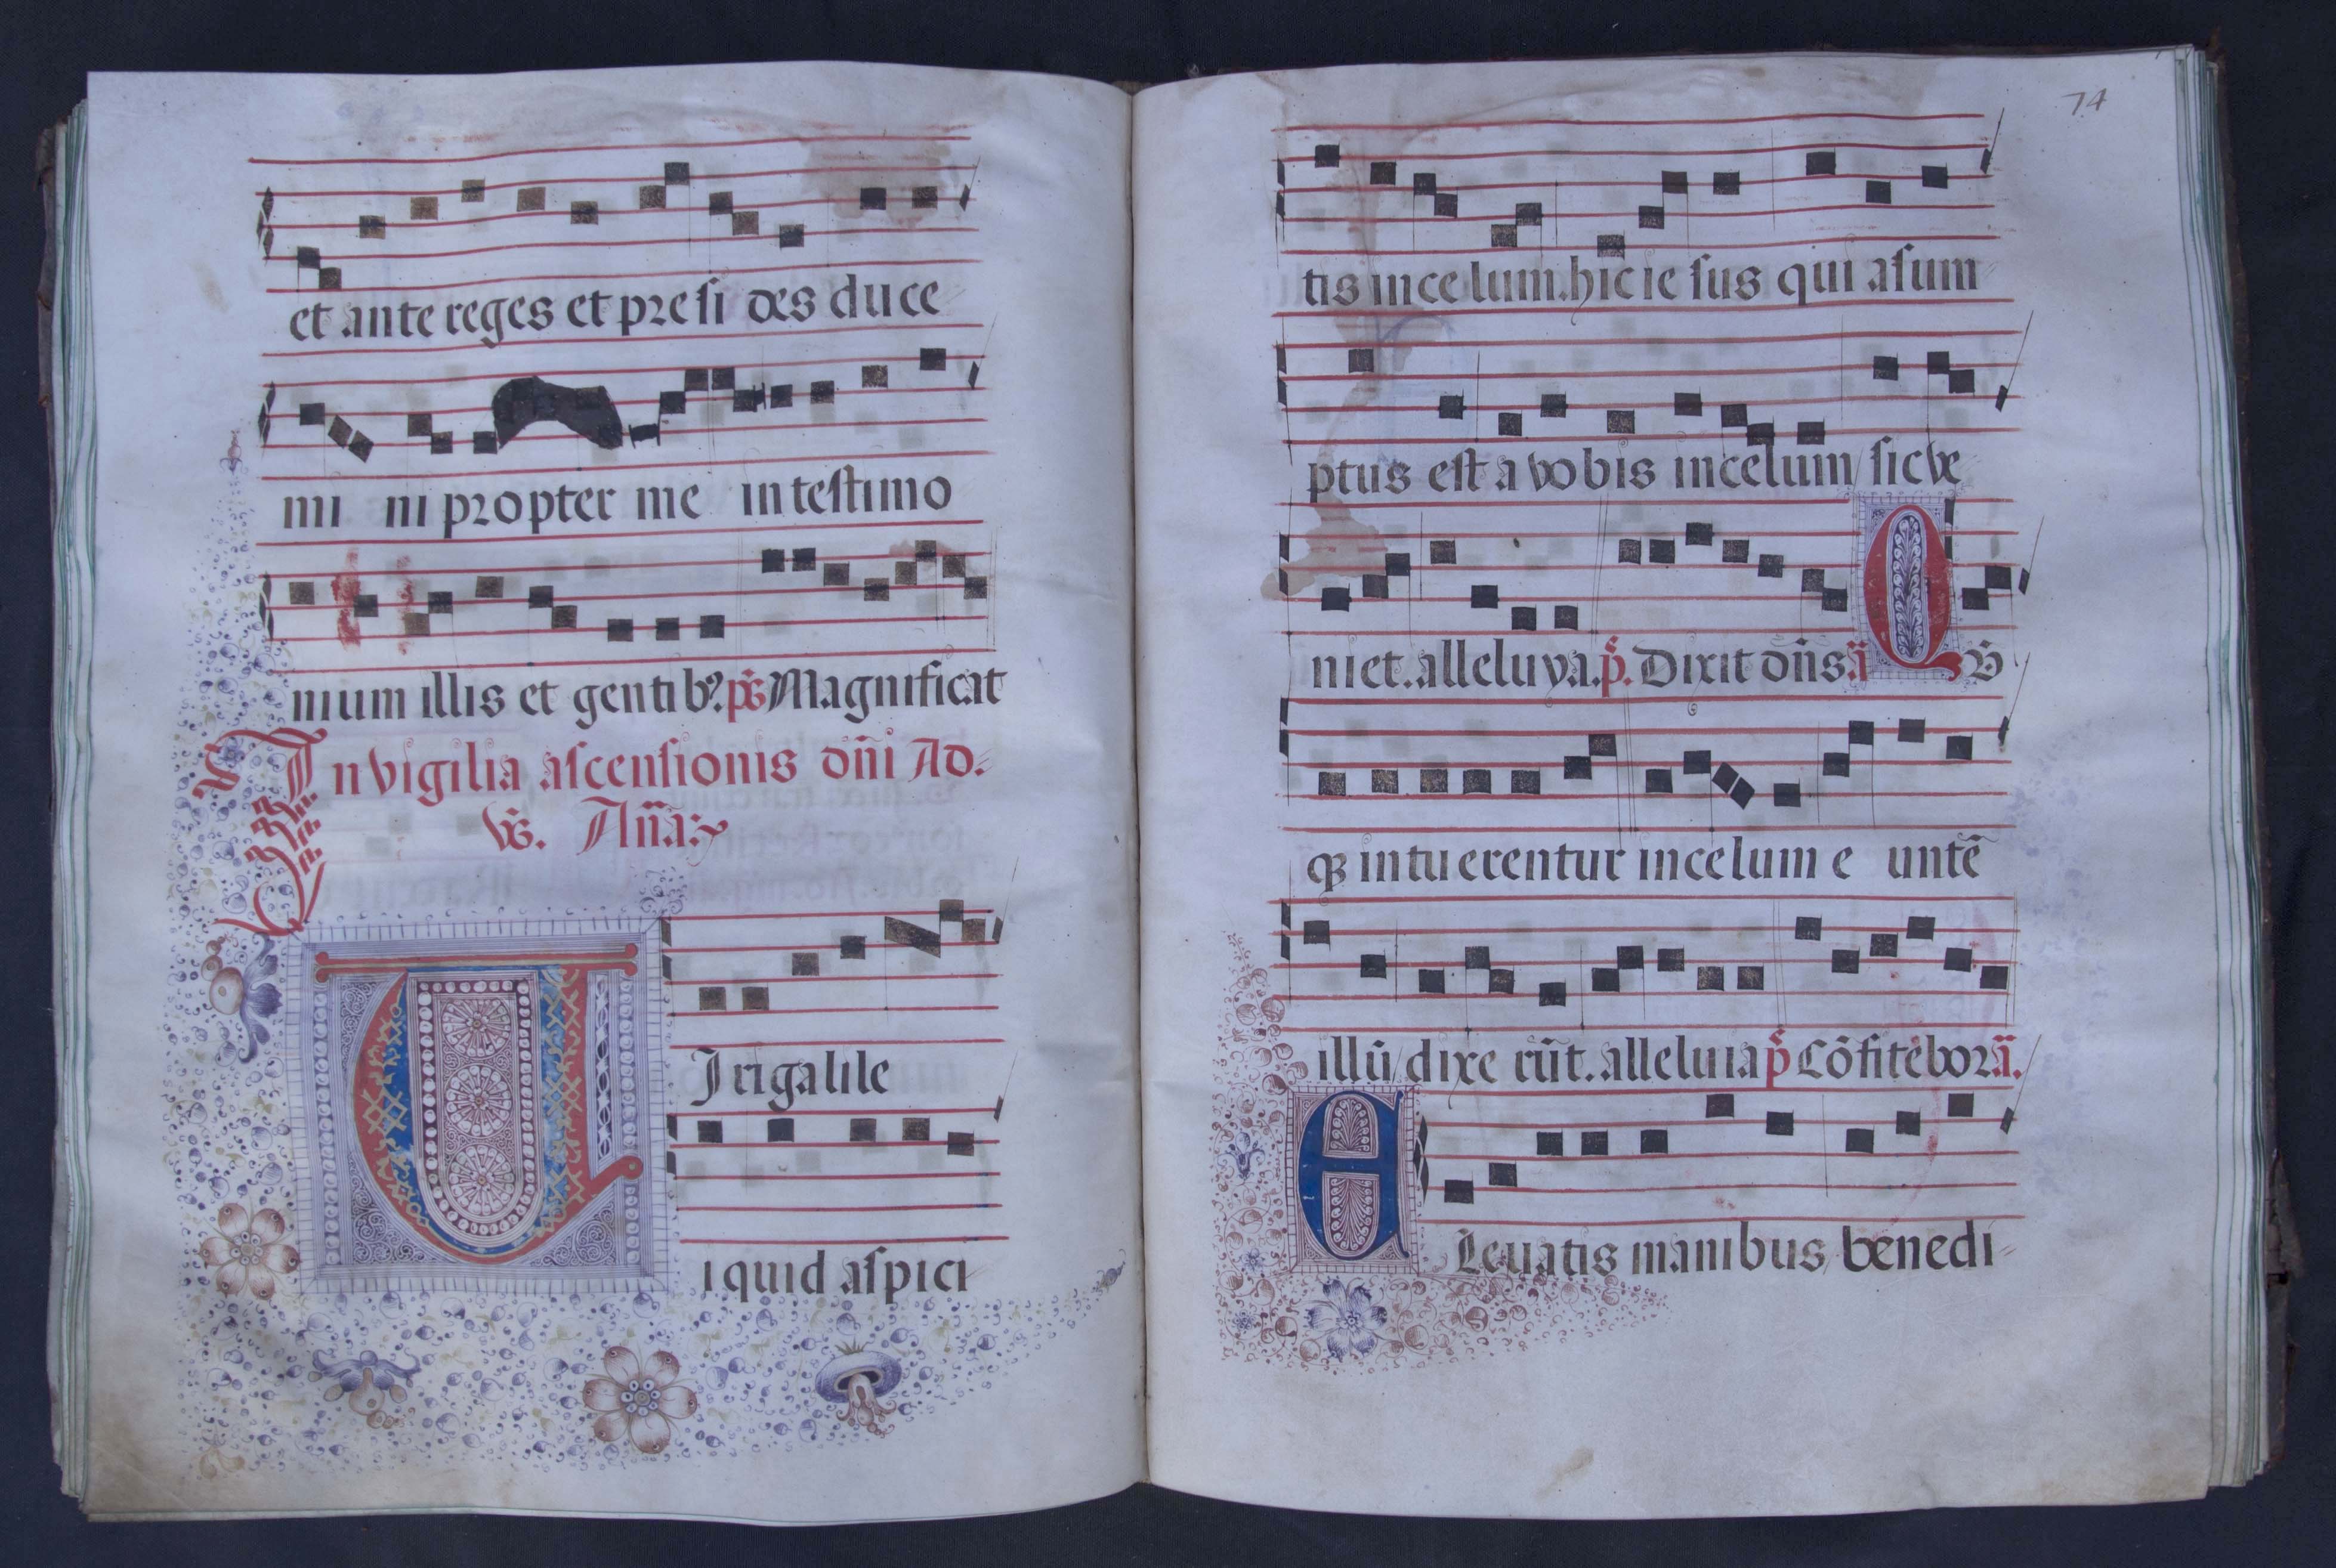 et ante reges et presi des duce
mi ni propter me in testimo
nium illis et gentibꝰ. p̄s Magnificat
In vigilia ascensionis dñi Ad.
vs̄. Añã:
VIri galile
i quid aspici
74
tis in celum. hic ie sus qui asum
ptus est a vobis in celum sic ve
niet. alleluya. p̄. Dixit dn̄s ã Q V̄
qꝫ intuerentur in celum e untē
illū dixe rūt. alleluia p̄ Cōfitebor ã.
E Leuatis manibus benedi